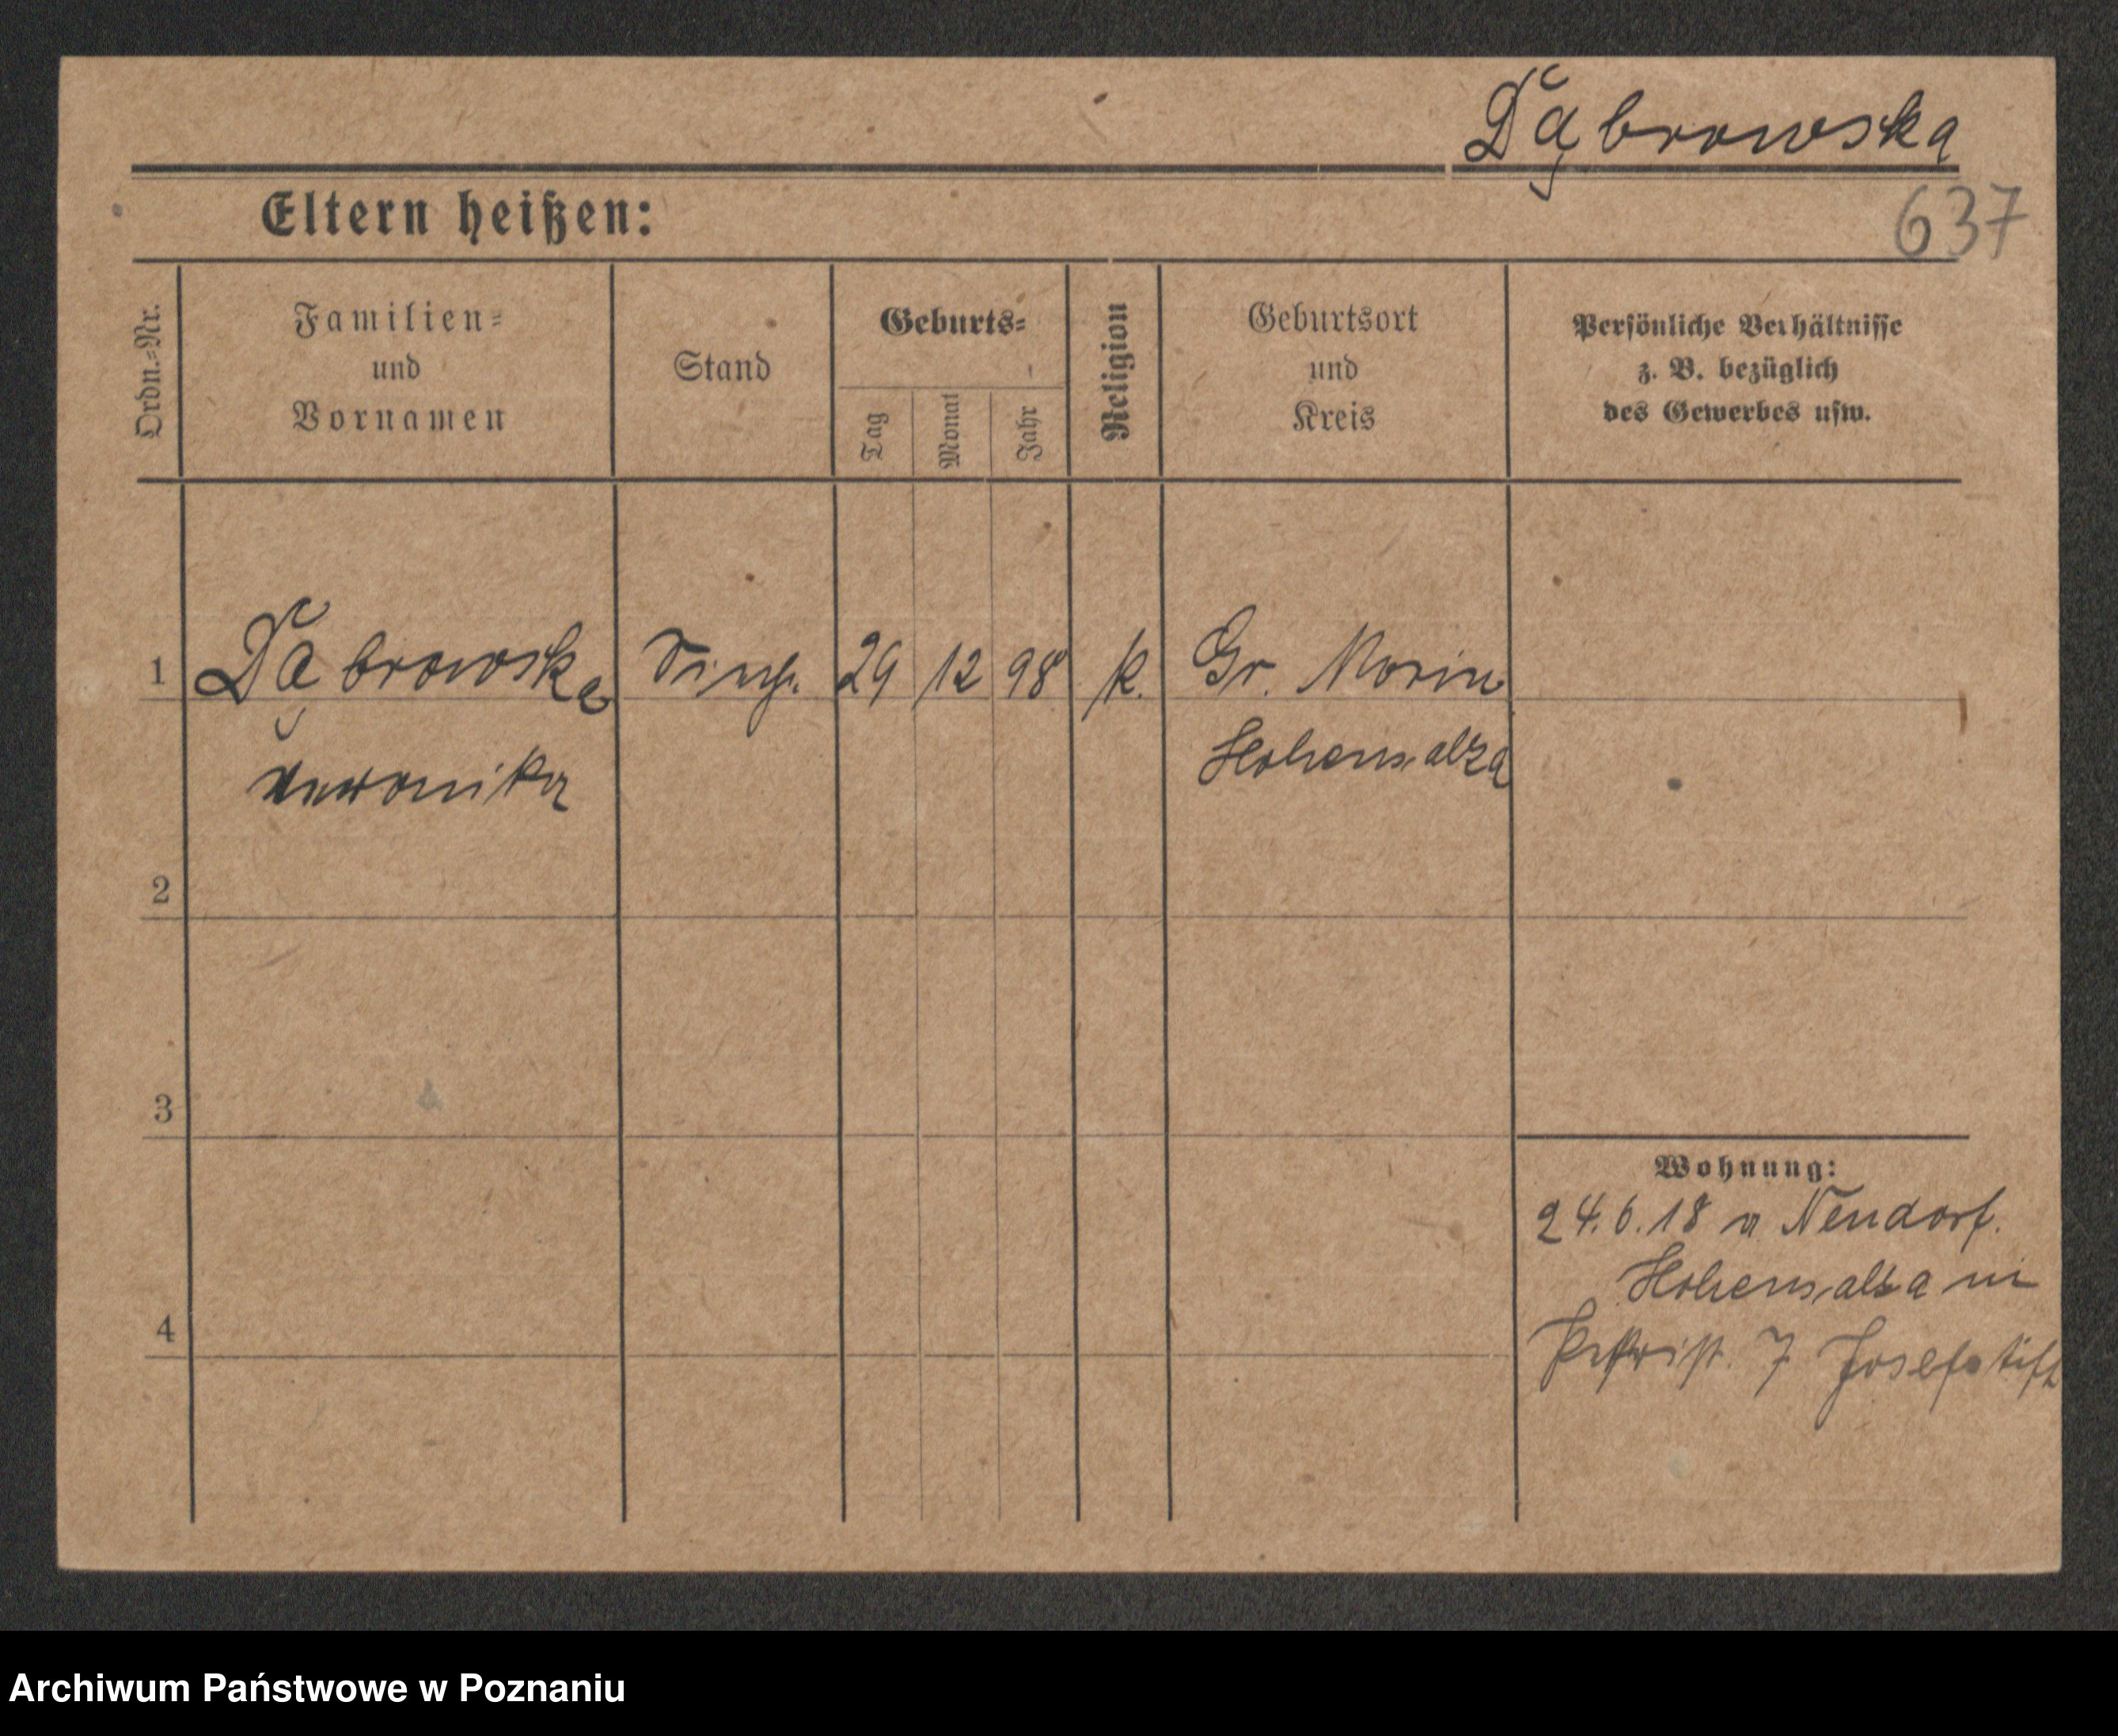 Dąbrowska
637
Eltern heißen:
Ordn.-Nr.
Familien-
und
Vornamen
Stand
Geburts-
Tag
Monat
Jahr
Religion
Geburtsort
und
Kreis
Persönliche Verhältnisse
z. B. bezüglich
des Gewerbes usw.
1 Dąbrowska 29 12 98 k. Gr. Morin
Veronika Hohensalza
2
3
4
Wohnung:
24.6.18 v Neudorf.
Hohensalza in
7 Josefstift
Archiwum Państwowe w Poznaniu